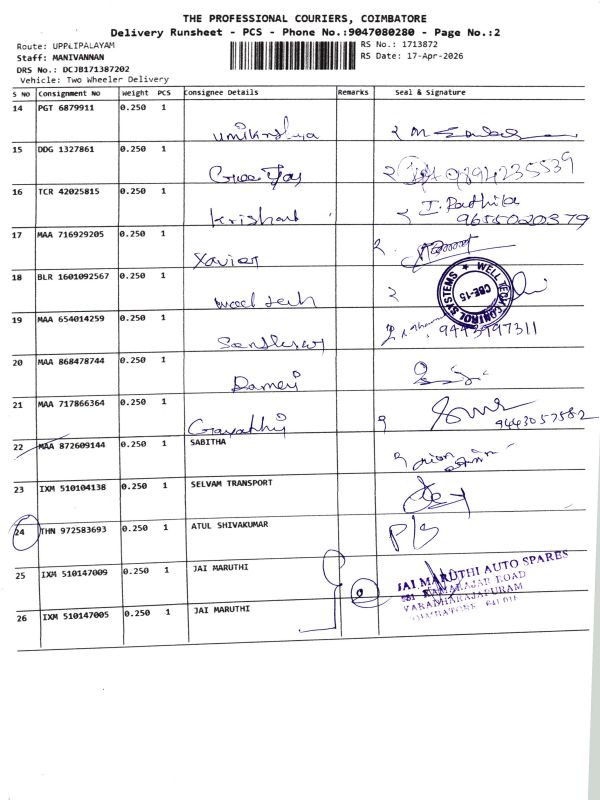 THE PROFESSIONAL COURIERS, COIMBATORE
Delivery Runsheet - PCS - Phone No.:9047080280 - Page No.:2
Route: UPPLIPALAYAM
RS No.: 1713872
Staff: MANIVANNAN
RS Date: 17-Apr-2026
DRS No.: DCJB171387202
Vehicle: Two Wheeler Delivery
S NO Consignment No Weight PCS Consignee Details Remarks Seal & Signature
14 PGT 6879911 0.250 1
15 DDG 1327861 0.250 1 9894235539
16 TCR 42025815 0.250 1 I. Radhika
Krishant 9655020379
17 MAA 716929205 0.250 1
Xavier
18 BLR 1601092567 0.250 1 WELL TECH CONTROL SYSTEMS CBE-15
well tech
19 MAA 654014259 0.250 1 9443997311
20 MAA 868478744 0.250 1
21 MAA 717866364 0.250 1
Gayathri 9443057582
22 MAA 872609144 0.250 1 SABITHA
23 IXM 510104138 0.250 1 SELVAM TRANSPORT
24 THN 972583693 0.250 1 ATUL SHIVAKUMAR
25 IXM 510147009 0.250 1 JAI MARUTHI JAI MARUTHI AUTO SPARES
KAMARAJAR ROAD
VARADHARAJAPURAM
26 IXM 510147005 0.250 1 JAI MARUTHI COIMBATORE